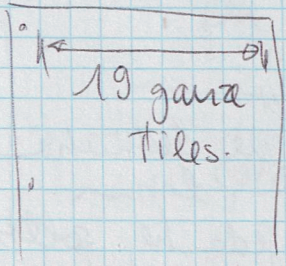 19 ganze
Tiles.